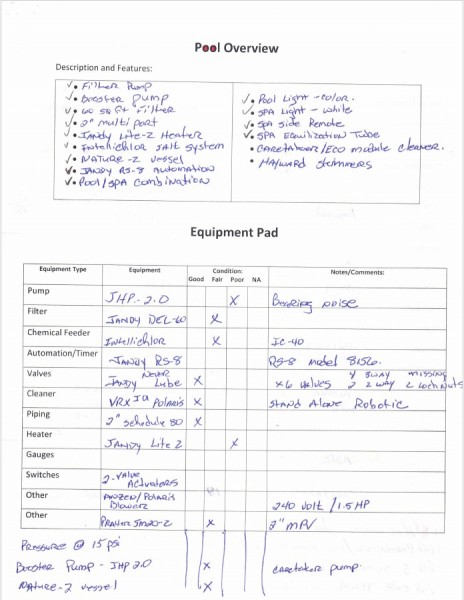 Pool Overview
Description and Features:
✓• Filter Pump
✓• Booster Pump
✓• 60 SQ FT Filter
✓• 2" multi port
✓• Jandy Lite-2 Heater
✓• Intellichlor Salt System
✓• Nature-2 Vessel
✓• Jandy RS-8 Automation
✓• Pool/SPA Combination
✓• Pool Light - color.
✓• SPA Light - white
✓• SPA side Remote
✓• SPA Equilization Tube
• Caretaker/Eco module cleaner.
• Hayward Skimmers
Equipment Pad
Equipment Type Equipment Condition: Notes/Comments:
Good Fair Poor NA
Pump JHP-2.0 X Bearing noise
Filter Jandy DEL-60 X
Chemical Feeder Intellichlor X IC-40
Automation/Timer Jandy RS-8 RS-8 model 8156.
Valves Jandy Never Lube X x6 valves 4 3way 2 2way missing 2 Lock Nuts
Cleaner VRX Polaris X Stand Alone Robotic
Piping 2" schedule 80 X
Heater Jandy Lite 2 X
Gauges
Switches 2-Valve Actuators
Other Polaris Blower 240 Volt / 1.5 HP
Other X 2" MPV
Pressure @ 15 psi
Booster Pump - JHP 2.0 X caretaker pump
Nature-2 vessel X